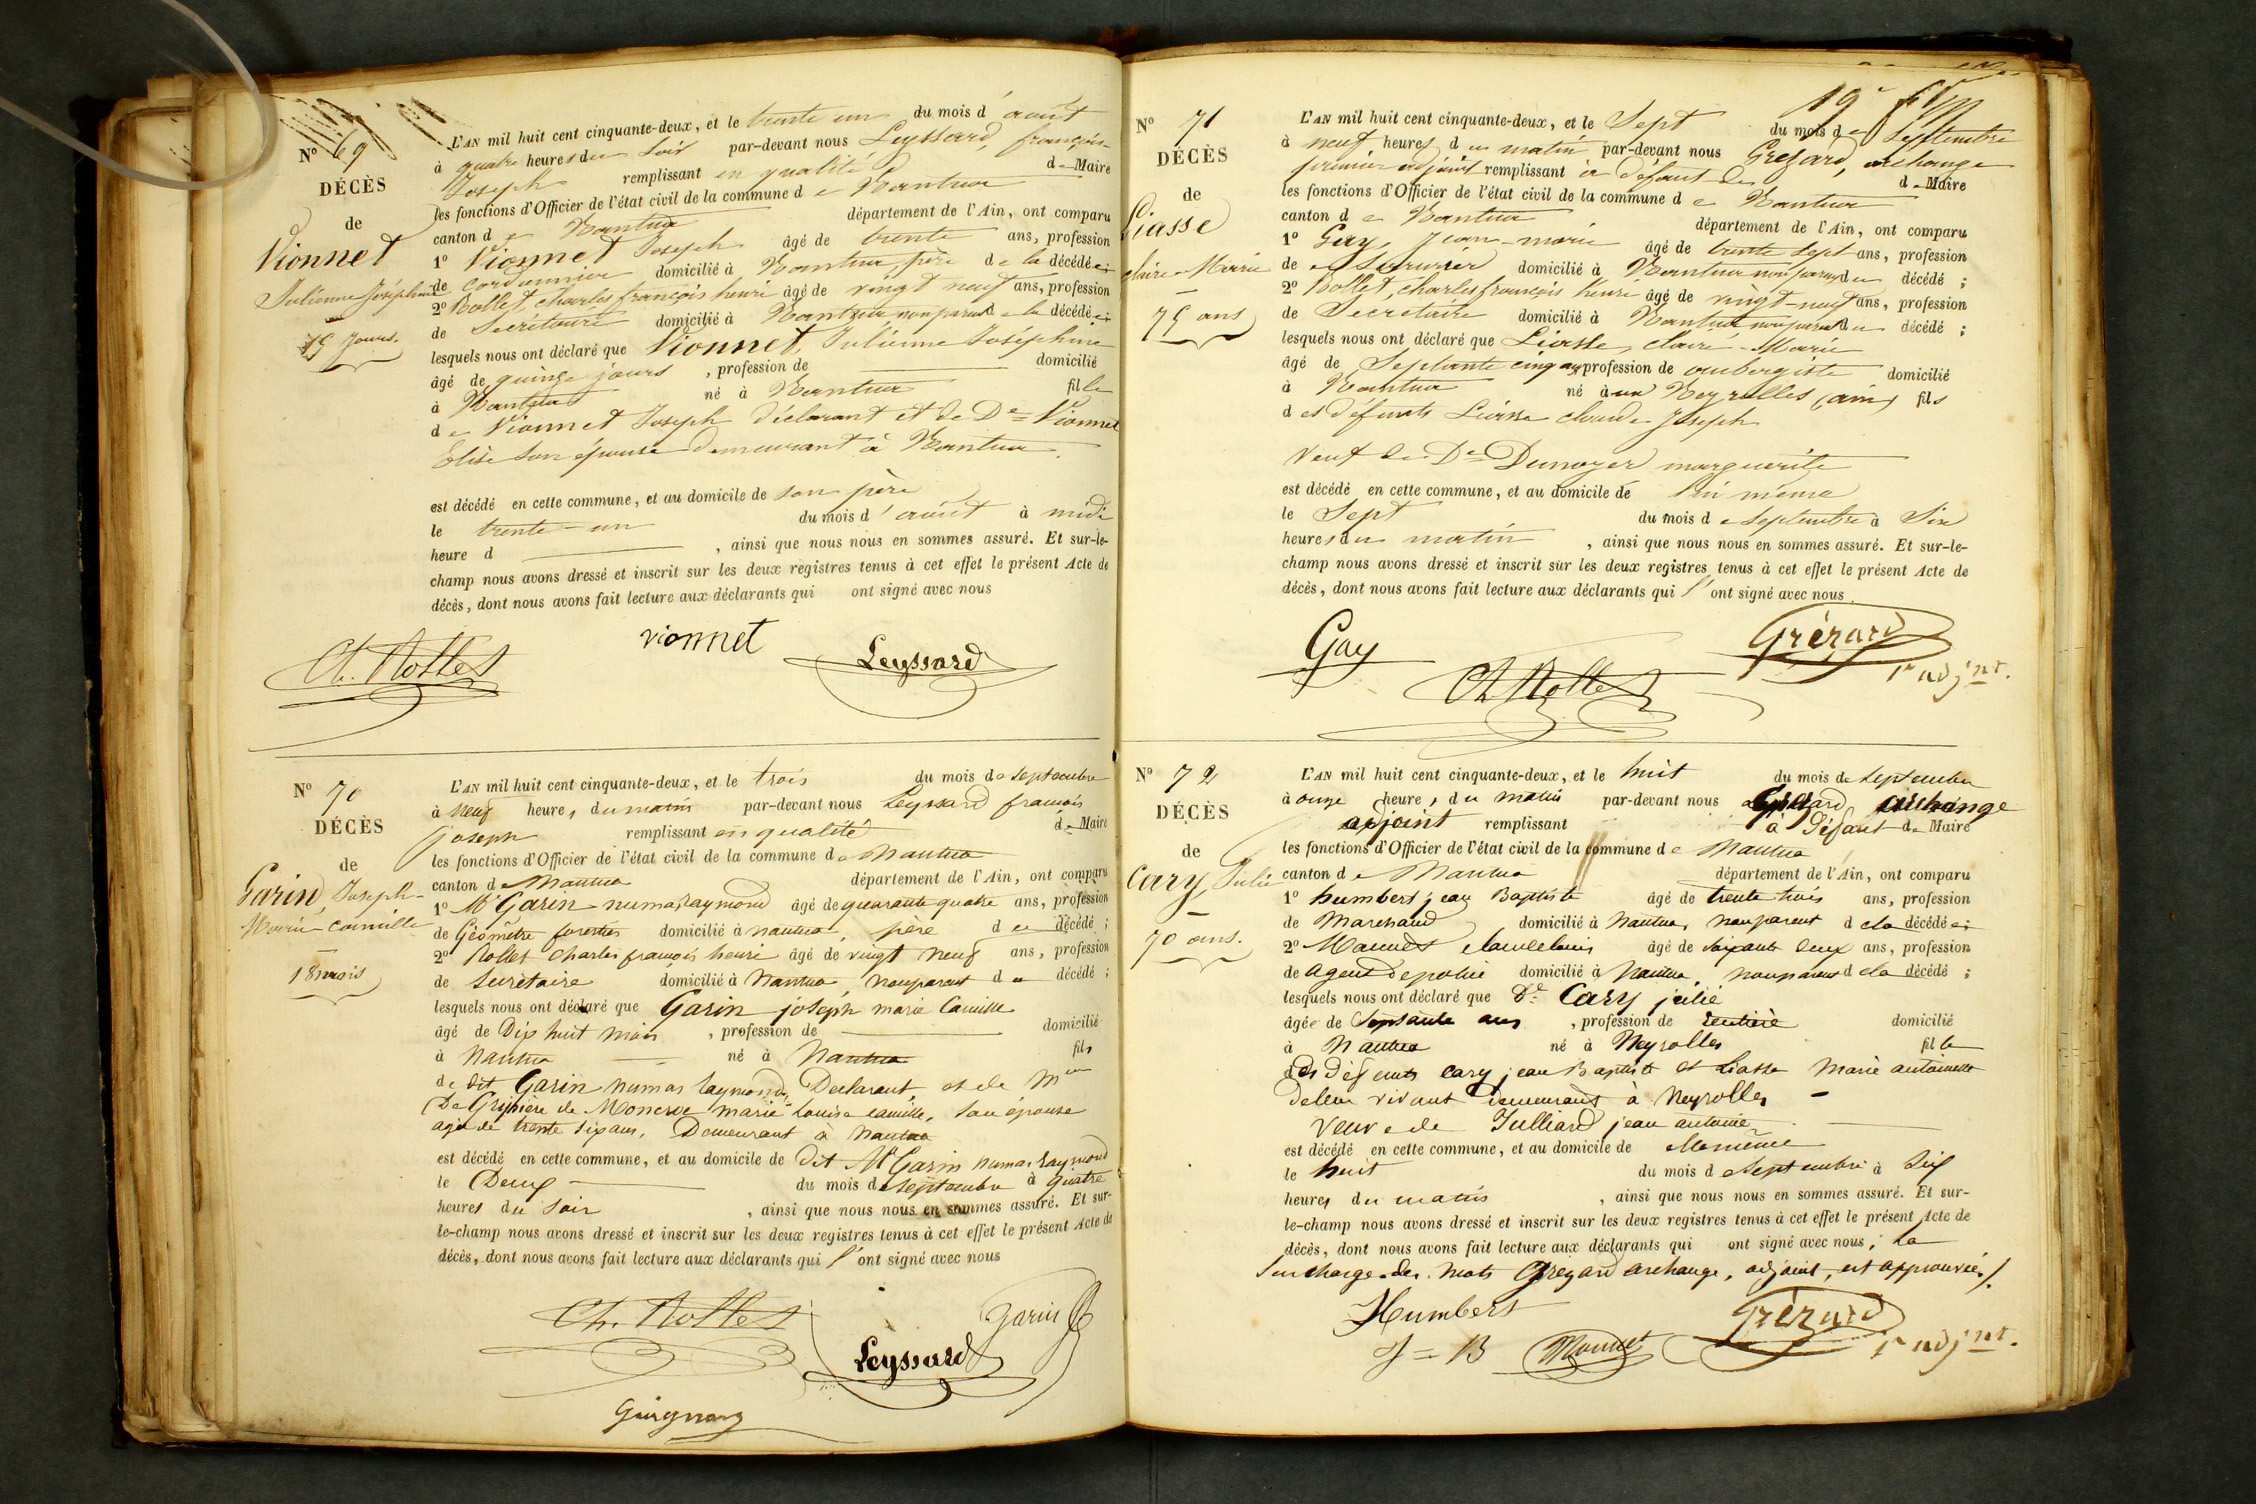 N° 69
DÉCÈS
de
Vionnet
Julienne Joséphine
15 Jours.
L'AN mil huit cent cinquante-deux, et le trente un du mois d'août
à quatre heures du soir par-devant nous Leyssard, françois
Joseph remplissant en qualité de Maire
les fonctions d'Officier de l'état civil de la commune de Nantua
canton de Nantua département de l'Ain, ont comparu
1° Vionnet Joseph âgé de trente ans, profession
de cordonnier domicilié à Nantua père de la décédée;
2° Rollet, charles françois henri âgé de vingt neuf ans, profession
de Secrétaire domicilié à Nantua non parent de la décédée;
lesquels nous ont déclaré que Vionnet, Julienne Joséphine
âgé de quinze jours, profession de domicilié
à Nantua né à Nantua fille
de Vionnet Joseph déclarant et de De Vionnet
Elise son épouse demeurant à Nantua.
est décédé en cette commune, et au domicile de son père
le trente-un du mois d'août à midi
heure d , ainsi que nous nous en sommes assuré. Et sur-le-
champ nous avons dressé et inscrit sur les deux registres tenus à cet effet le présent Acte de
décès, dont nous avons fait lecture aux déclarants qui ont signé avec nous
Ch. Rollet vionnet Leyssard
N° 70
DÉCÈS
de
Garin, Joseph-
Marie camille
18 mois
L'AN mil huit cent cinquante-deux, et le trois du mois de septembre
à neuf heures du matin par-devant nous Leyssard françois
joseph remplissant en qualité de Maire
les fonctions d'Officier de l'état civil de la commune de Nantua
canton de Nantua département de l'Ain, ont comparu
1° Mr Garin numa Raymond âgé de quarante quatre ans, profession
de Géomètre forestier domicilié à nantua, père du décédé;
2° Rollet charles françois henri âgé de vingt neuf ans, profession
de secrétaire domicilié à Nantua, nonparent du décédé;
lesquels nous ont déclaré que Garin joseph marie Camille
âgé de Dix huit mois, profession de domicilié
à Nantua né à Nantua fils
de dit Garin numas raymond, Déclarant, et de Me
De Gripière de Moncroc marie Louise camille, son épouse
agée de trente six ans, Demeurant à Nantua
est décédé en cette commune, et au domicile de dit Mr Garin numas raymond
le Deux du mois de septembre à quatre
heures du soir, ainsi que nous nous en sommes assuré. Et sur-
le-champ nous avons dressé et inscrit sur les deux registres tenus à cet effet le présent Acte de
décès, dont nous avons fait lecture aux déclarants qui l'ont signé avec nous
Ch. Rollet Leyssard Garin
N° 71
DÉCÈS
de
Liasse
claire-Marie
75 ans
L'AN mil huit cent cinquante-deux, et le Sept du mois de Septembre
à neuf heures du matin par-devant nous Grézard, archange
premier adjoint remplissant à défaut de Maire
les fonctions d'Officier de l'état civil de la commune de Nantua
canton de Nantua département de l'Ain, ont comparu
1° Gay, Jean-marie âgé de trente sept ans, profession
de Serrurier domicilié à Nantua non parent du décédé;
2° Rollet, charles françois Henri âgé de vingt-neuf ans, profession
de Secrétaire domicilié à Nantua non parent du décédé;
lesquels nous ont déclaré que Liasse, claire-Marie
âgé de Septante cinq ans profession de aubergiste domicilié
à Nantua né à aux Neyrolles (ain) fils
des défunts Liasse claude Joseph
Veuf de De Dunoyer marguerite
est décédé en cette commune, et au domicile de lui même
le Sept du mois de septembre à Six
heures du matin, ainsi que nous nous en sommes assuré. Et sur-le-
champ nous avons dressé et inscrit sur les deux registres tenus à cet effet le présent Acte de
décès, dont nous avons fait lecture aux déclarants qui l'ont signé avec nous
Gay Ch Rollet Grézard
1er adjnt.
N° 72
DÉCÈS
de
Cary Julie
70 ans.
L'AN mil huit cent cinquante-deux, et le huit du mois de septembre
à onze heures du matin par-devant nous Grézard, archange
adjoint remplissant à défaut de Maire
les fonctions d'Officier de l'état civil de la commune de Nantua
canton de Nantua département de l'Ain, ont comparu
1° humbert jean Baptiste âgé de trente trois ans, profession
de Marchand domicilié à Nantua, nonparent de la décédée;
2° claude louis âgé de soixante deux ans, profession
de agent de police domicilié à Nantua, nonparent de la décédé;
lesquels nous ont déclaré que De Cary julie
âgée de septante ans, profession de rentière domicilié
à Nantua né à Neyrolles fille
des défunts cary jean Baptiste et Liasse Marie antoinette
de leur vivant demeurant à Neyrolles
veuve de Julliard jean antoine
est décédé en cette commune, et au domicile de elle même
le huit du mois de Septembre à Six
heures du matin, ainsi que nous nous en sommes assuré. Et sur-
le-champ nous avons dressé et inscrit sur les deux registres tenus à cet effet le présent Acte de
décès, dont nous avons fait lecture aux déclarants qui ont signé avec nous; la
surcharge des mots Grezard archange, adjoint, est approuvée.
Humbert Grézard
J = B 1er adjnt.